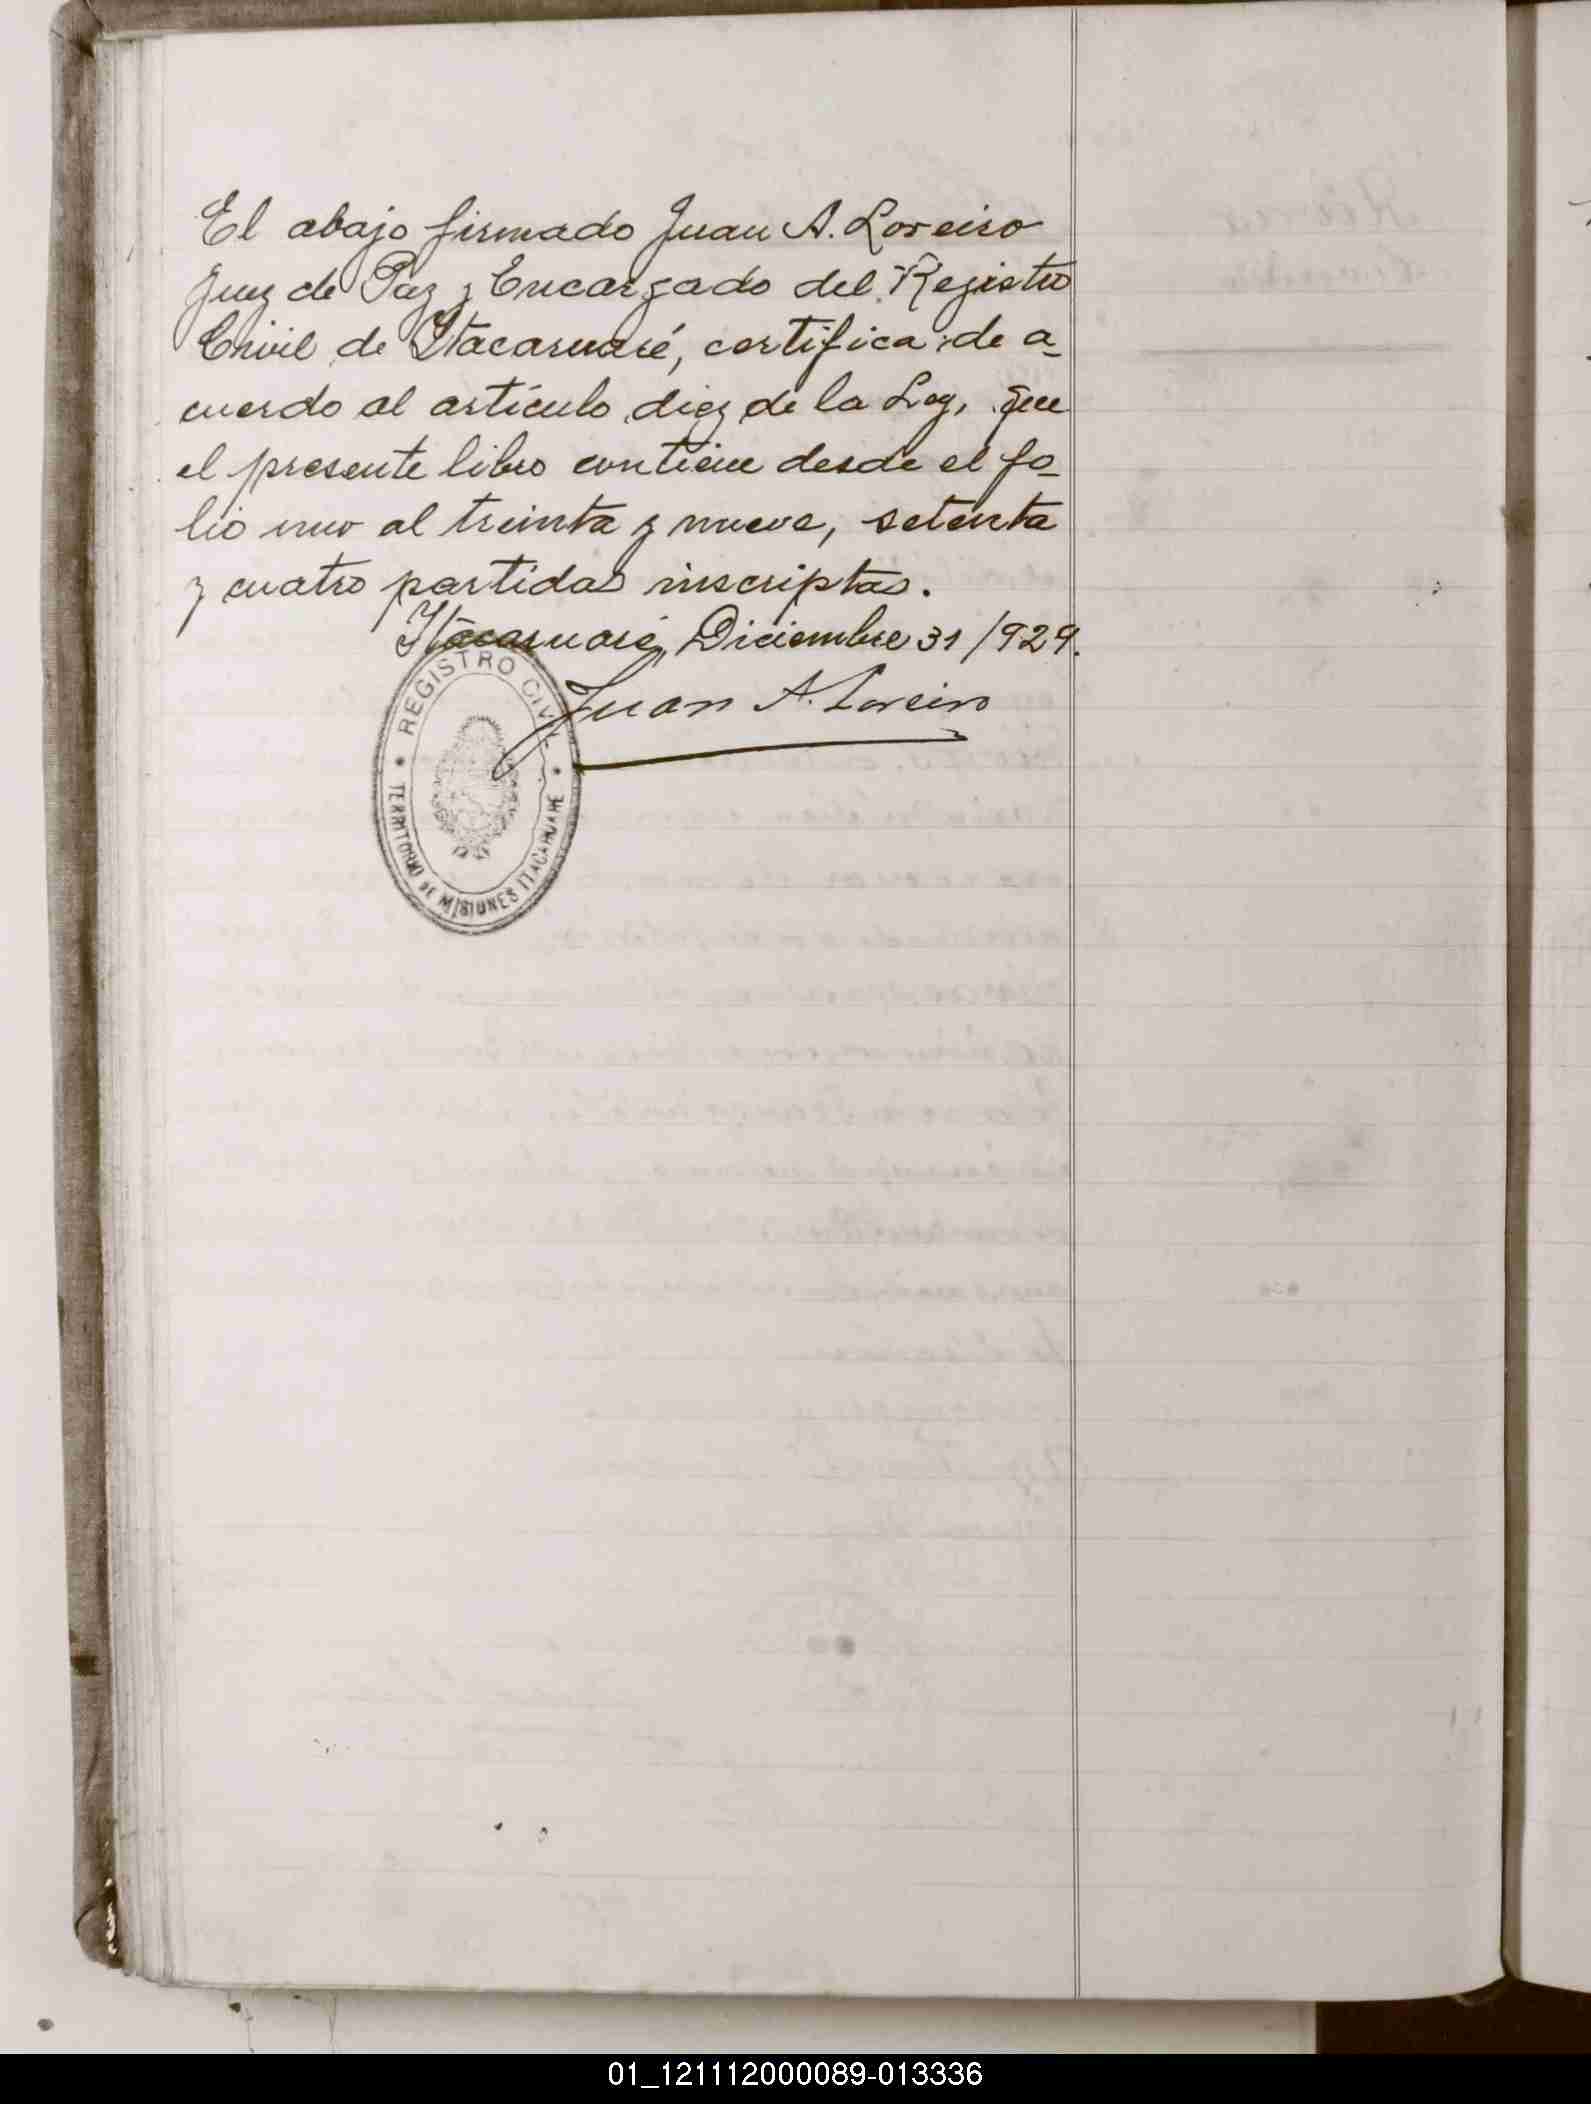 El abajo firmado Juan A. Loreiro
Juez de Paz y Encargado del Registro
Civil de Itacaruaré, certifica: de a_
cuerdo al artículo diez de la Ley, que
el presente libro contiene desde el fo_
lio uno al treinta y nueve, setenta
y cuatro partidas inscriptas.
Itacaruaré, Diciembre 31/929.
Juan A. Loreiro
REGISTRO CIVIL
TERRITORIO DE MISIONES ITACARUARE
01_121112000089-013336